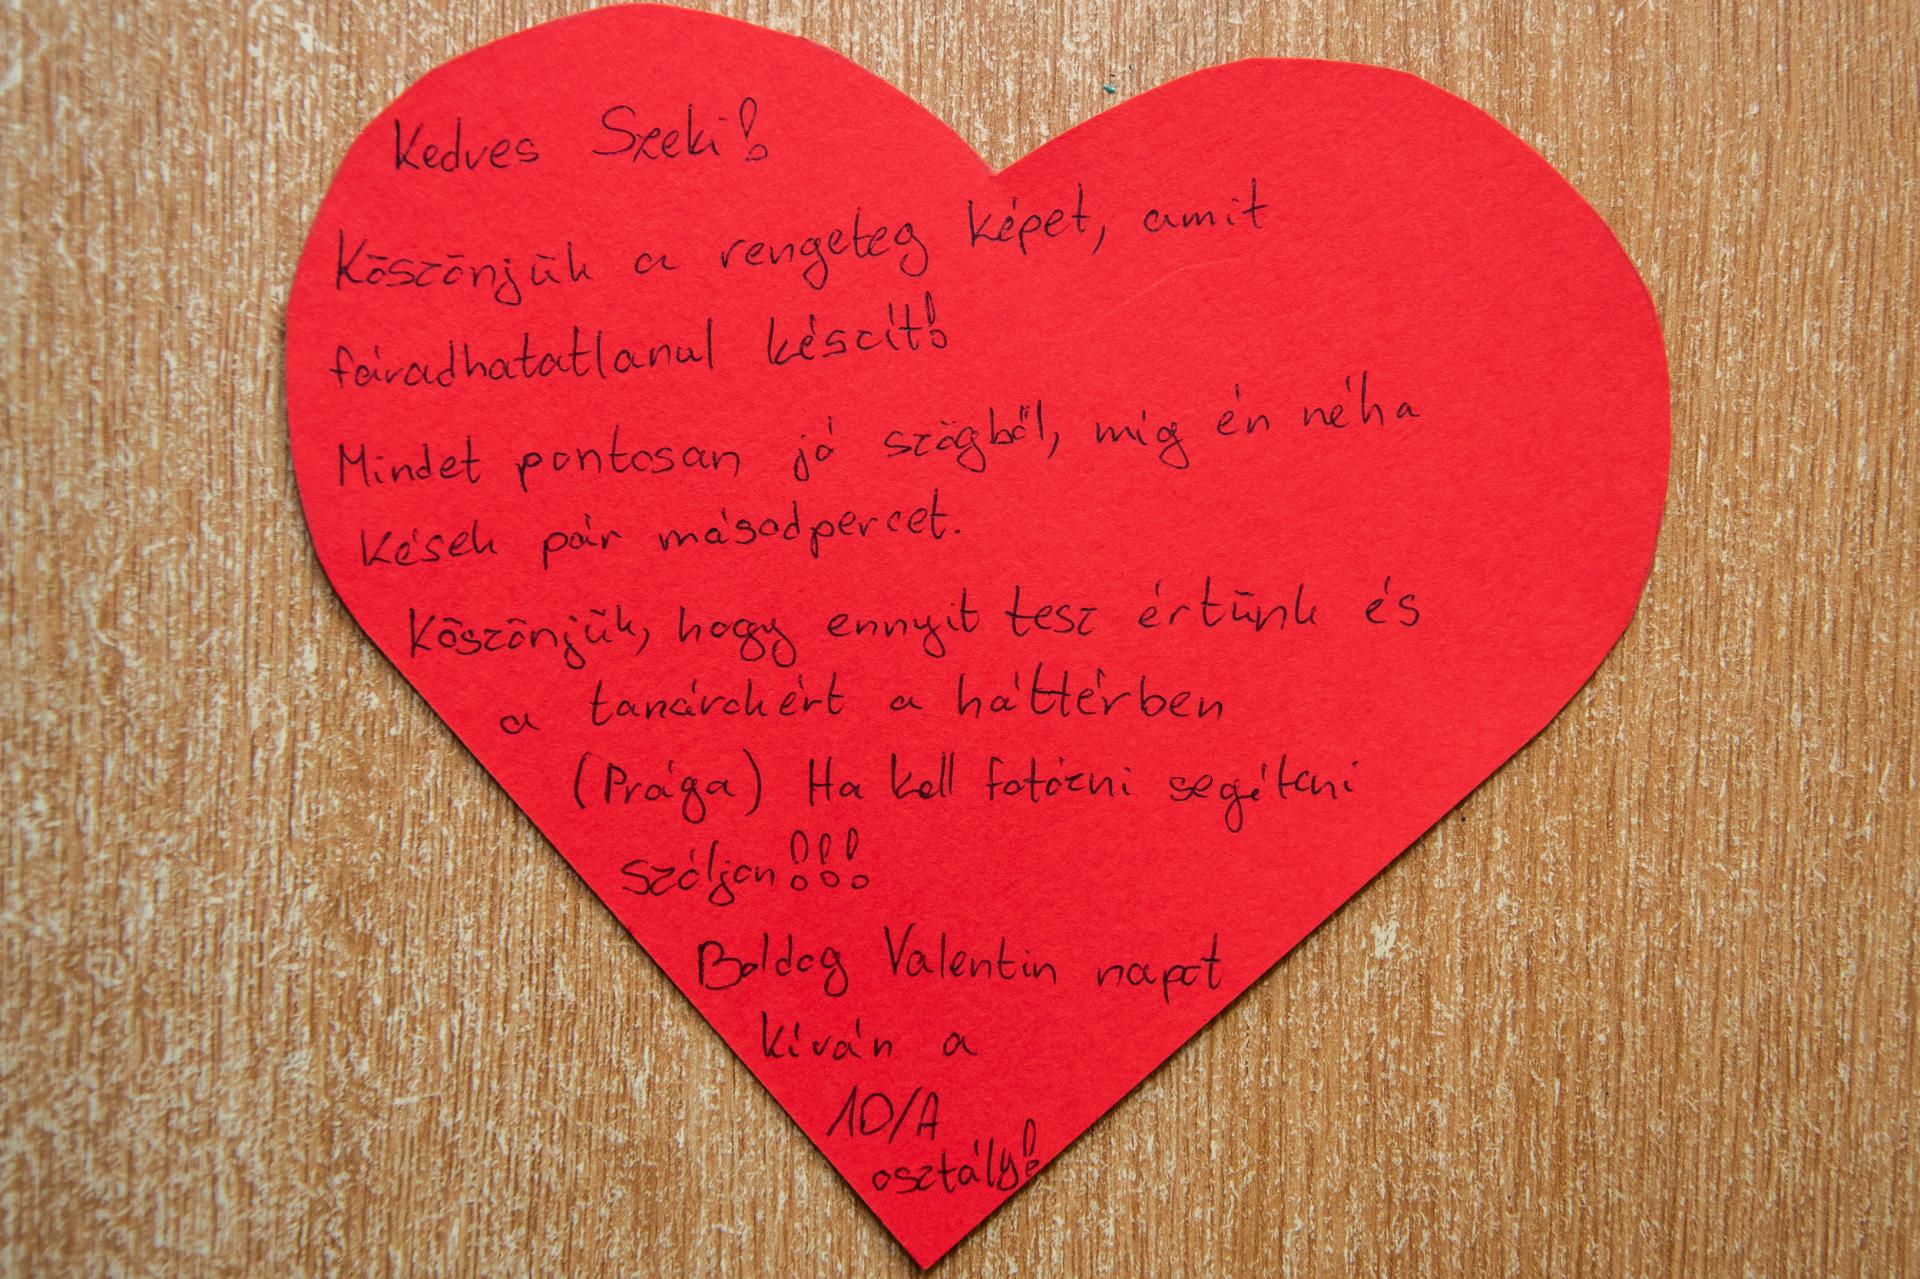 Kedves Szeki!
Köszönjük a rengeteg képet, amit
fáradhatatlanul készít!
Mindet pontosan jó szögből, míg én néha
kések pár másodpercet.
Köszönjük, hogy ennyit tesz értünk és
a tanárokért a háttérben
(Prága) Ha kell fotózni segíteni
szóljon!!!
Boldog Valentin napot
kíván a
10/A
osztály!